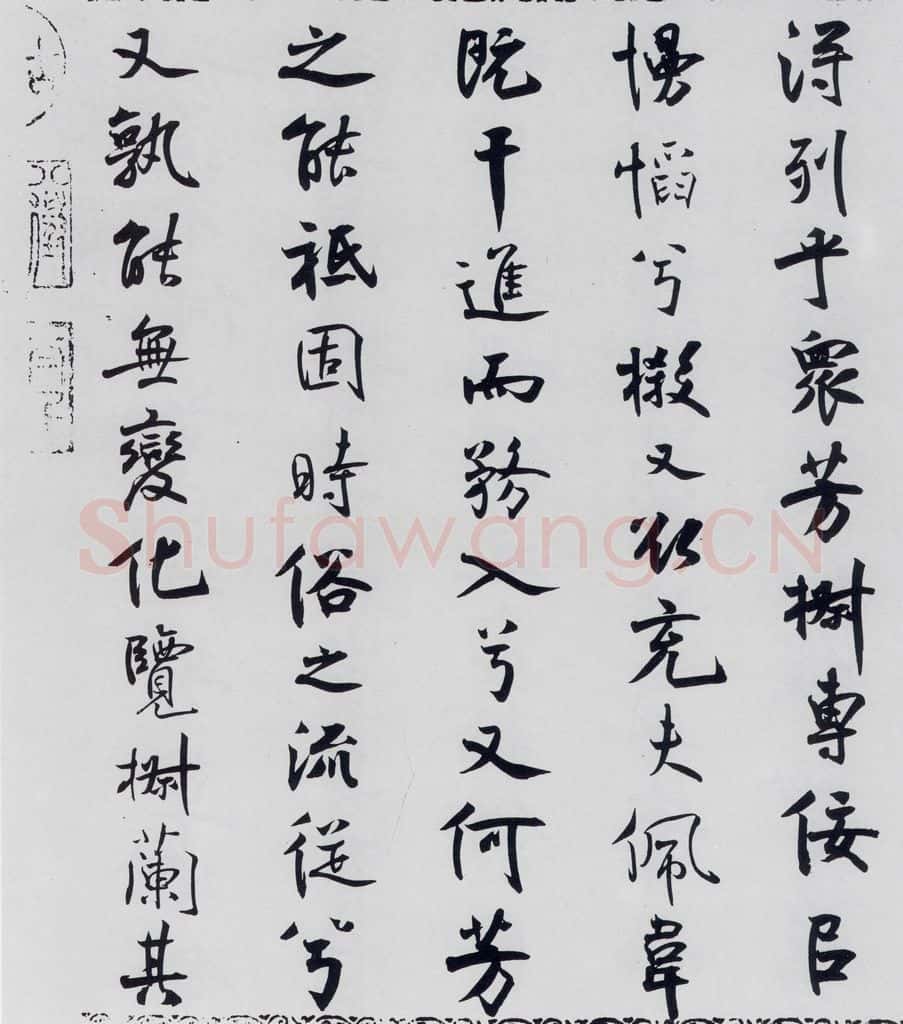 得列乎衆芳椒專佞㠯
慢慆兮樧又欲充夫佩幃
既干進而務入兮又何芳
之能祗固時俗之流從兮
又孰能無變化覽椒蘭其
Shufawang.CN